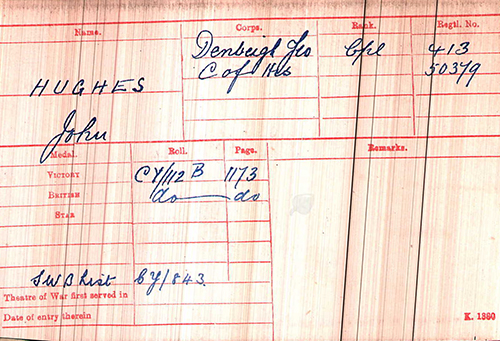 Name. Corps. Rank. Regtl. No.
Denbeigh Yeo Cpl 413
C of Hrs 50379
HUGHES
John
Medal. Roll. Page. Remarks.
VICTORY CY/112 B 1173
BRITISH do do
STAR
SWB List CY/843.
Theatre of War first served in
Date of entry therein
K. 1380